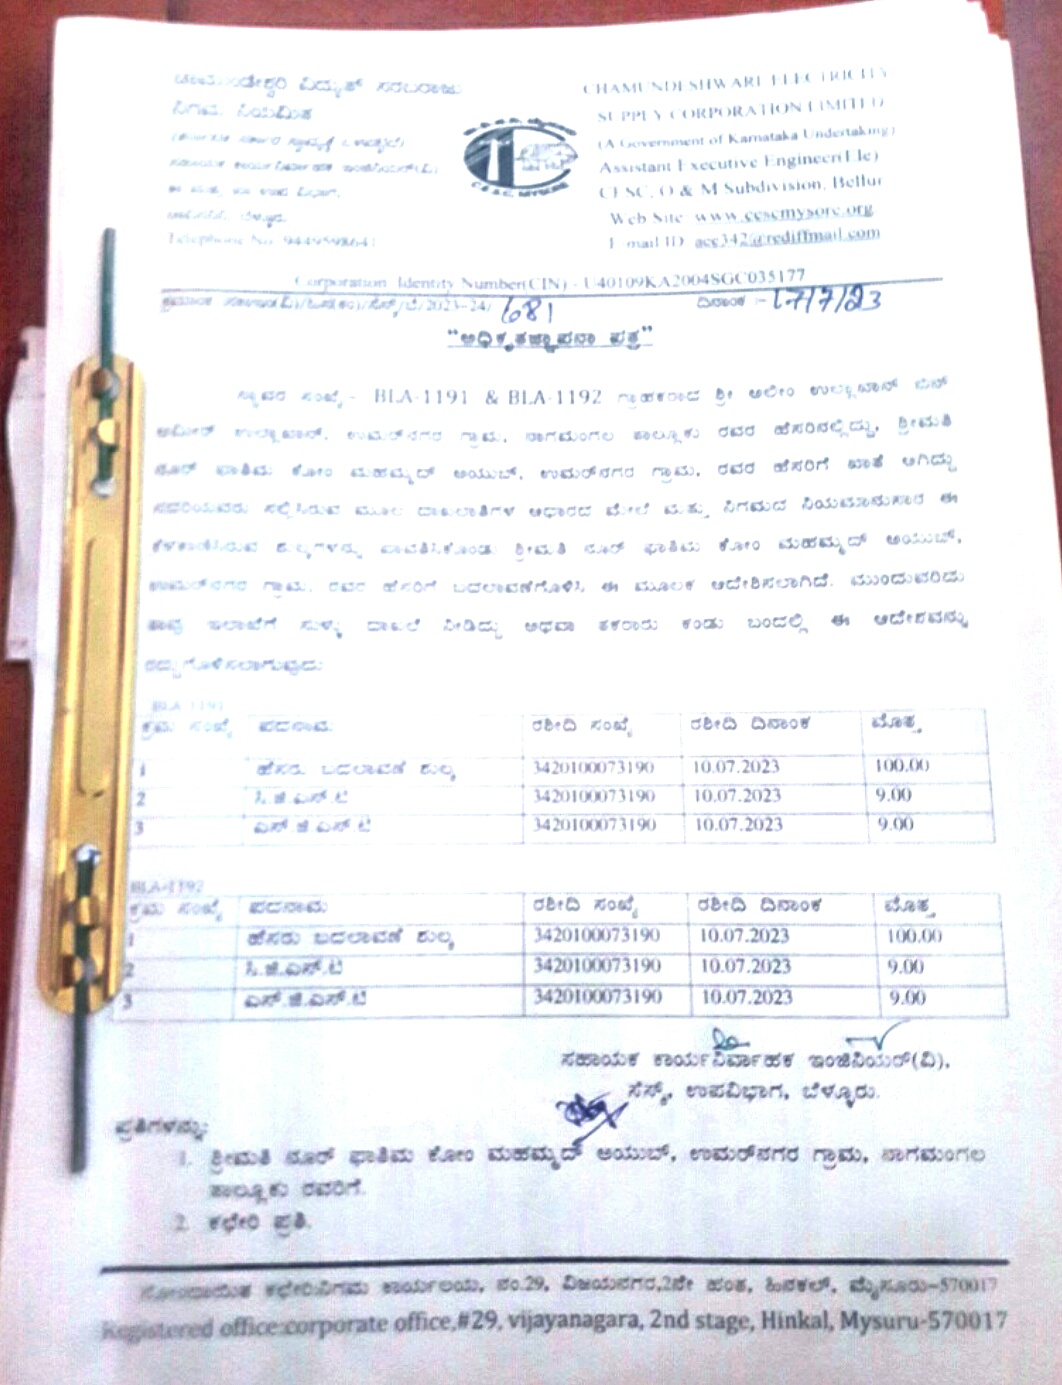 ಚಾಮುಂಡೇಶ್ವರಿ ವಿದ್ಯುತ್ ಸರಬರಾಜು
ನಿಗಮ ನಿಯಮಿತ
CHAMUNDESHWARI ELECTRICITY
SUPPLY CORPORATION LIMITED
(A Government of Karnataka Undertaking)
Assistant Executive Engineer(Ele)
CESC, O & M Subdivision, Bellur
Web Site www.cescmysore.org
E-mail ID aee342@rediffmail.com
Telephone No. 9449598641
C.E.S.C. MYSORE
Corporation Identity Number(CIN) - U40109KA2004SGC035177
2023-24/ 681
ದಿನಾಂಕ :- 17/7/23
"ಅಧಿಕೃತಜ್ಞಾಪನಾ ಪತ್ರ"
ಸ್ಥಾವರ ಸಂಖ್ಯೆ:- BLA-1191 & BLA-1192 ಗ್ರಾಹಕರಾದ ಶ್ರೀ ಅಲೀಂ ಉಲ್ಲಾಖಾನ್ ಬಿನ್
ಅಮೀರ್ ಉಲ್ಲಾಖಾನ್, ಉಮರ್‌ನಗರ ಗ್ರಾಮ, ನಾಗಮಂಗಲ ತಾಲ್ಲೂಕು ರವರ ಹೆಸರಿನಲ್ಲಿದ್ದು, ಶ್ರೀಮತಿ
ನೂರ್ ಫಾತಿಮ ಕೋಂ ಮಹಮ್ಮದ್ ಅಯುಬ್, ಉಮರ್‌ನಗರ ಗ್ರಾಮ, ರವರ ಹೆಸರಿಗೆ ಖಾತೆ ಆಗಿದ್ದು
ಸದರಿಯವರು ಸಲ್ಲಿಸಿರುವ ಮೂಲ ದಾಖಲಾತಿಗಳ ಆಧಾರದ ಮೇಲೆ ಮತ್ತು ನಿಗಮದ ನಿಯಮಾನುಸಾರ ಈ
ಕೆಳಕಾಣಿಸಿರುವ ಶುಲ್ಕಗಳನ್ನು ಪಾವತಿಸಿಕೊಂಡು ಶ್ರೀಮತಿ ನೂರ್ ಫಾತಿಮ ಕೋಂ ಮಹಮ್ಮದ್ ಅಯುಬ್,
ಉಮರ್‌ನಗರ ಗ್ರಾಮ, ರವರ ಹೆಸರಿಗೆ ಬದಲಾವಣೆಗೊಳಿಸಿ ಈ ಮೂಲಕ ಆದೇಶಿಸಲಾಗಿದೆ. ಮುಂದುವರಿದು
ತಾವು ಇಲಾಖೆಗೆ ಸುಳ್ಳು ದಾಖಲೆ ನೀಡಿದ್ದು ಅಥವಾ ತಕರಾರು ಕಂಡು ಬಂದಲ್ಲಿ ಈ ಆದೇಶವನ್ನು
ರದ್ದುಗೊಳಿಸಲಾಗುವುದು
BLA-1191
ಕ್ರಮ ಸಂಖ್ಯೆ ಪದನಾಮ ರಶೀದಿ ಸಂಖ್ಯೆ ರಶೀದಿ ದಿನಾಂಕ ಮೊತ್ತ
1 ಹೆಸರು ಬದಲಾವಣೆ ಶುಲ್ಕ 3420100073190 10.07.2023 100.00
2 ಸಿ.ಜಿ.ಎಸ್.ಟಿ 3420100073190 10.07.2023 9.00
3 ಎಸ್.ಜಿ.ಎಸ್.ಟಿ 3420100073190 10.07.2023 9.00
BLA-1192
ಕ್ರಮ ಸಂಖ್ಯೆ ಪದನಾಮ ರಶೀದಿ ಸಂಖ್ಯೆ ರಶೀದಿ ದಿನಾಂಕ ಮೊತ್ತ
1 ಹೆಸರು ಬದಲಾವಣೆ ಶುಲ್ಕ 3420100073190 10.07.2023 100.00
2 ಸಿ.ಜಿ.ಎಸ್.ಟಿ 3420100073190 10.07.2023 9.00
3 ಎಸ್.ಜಿ.ಎಸ್.ಟಿ 3420100073190 10.07.2023 9.00
ಸಹಾಯಕ ಕಾರ್ಯನಿರ್ವಾಹಕ ಇಂಜಿನಿಯರ್(ವಿ),
ಸೆಸ್ಕ್, ಉಪವಿಭಾಗ, ಬೆಳ್ಳೂರು.
ಪ್ರತಿಗಳನ್ನು:
1. ಶ್ರೀಮತಿ ನೂರ್ ಫಾತಿಮ ಕೋಂ ಮಹಮ್ಮದ್ ಅಯುಬ್, ಉಮರ್‌ನಗರ ಗ್ರಾಮ, ನಾಗಮಂಗಲ
ತಾಲ್ಲೂಕು ರವರಿಗೆ.
2. ಕಛೇರಿ ಪ್ರತಿ.
ನೋಂದಾಯಿತ ಕಛೇರಿ:ನಿಗಮ ಕಾರ್ಯಾಲಯ, ನಂ.29, ವಿಜಯನಗರ,2ನೇ ಹಂತ, ಹಿನಕಲ್, ಮೈಸೂರು-570017
Registered office:corporate office,#29, vijayanagara, 2nd stage, Hinkal, Mysuru-570017